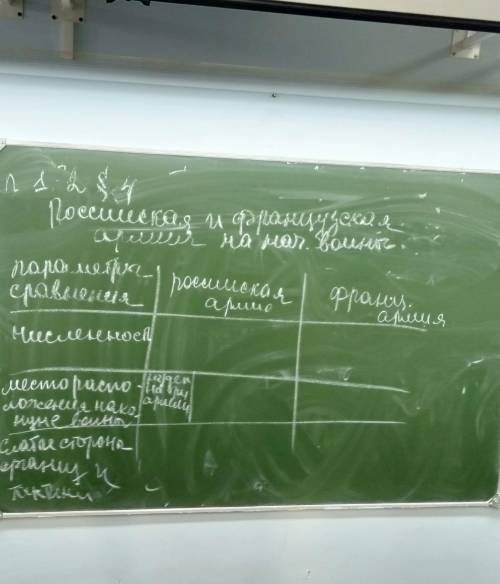 п 1-2 § 4
Российская и французская
армия на нач. войны.
параметры
сравнения
российская
армия
франц.
армия
Численность
место распо-
ложения нака-
нуне войны
на три
армии
слабая сторона
организ и
тактики